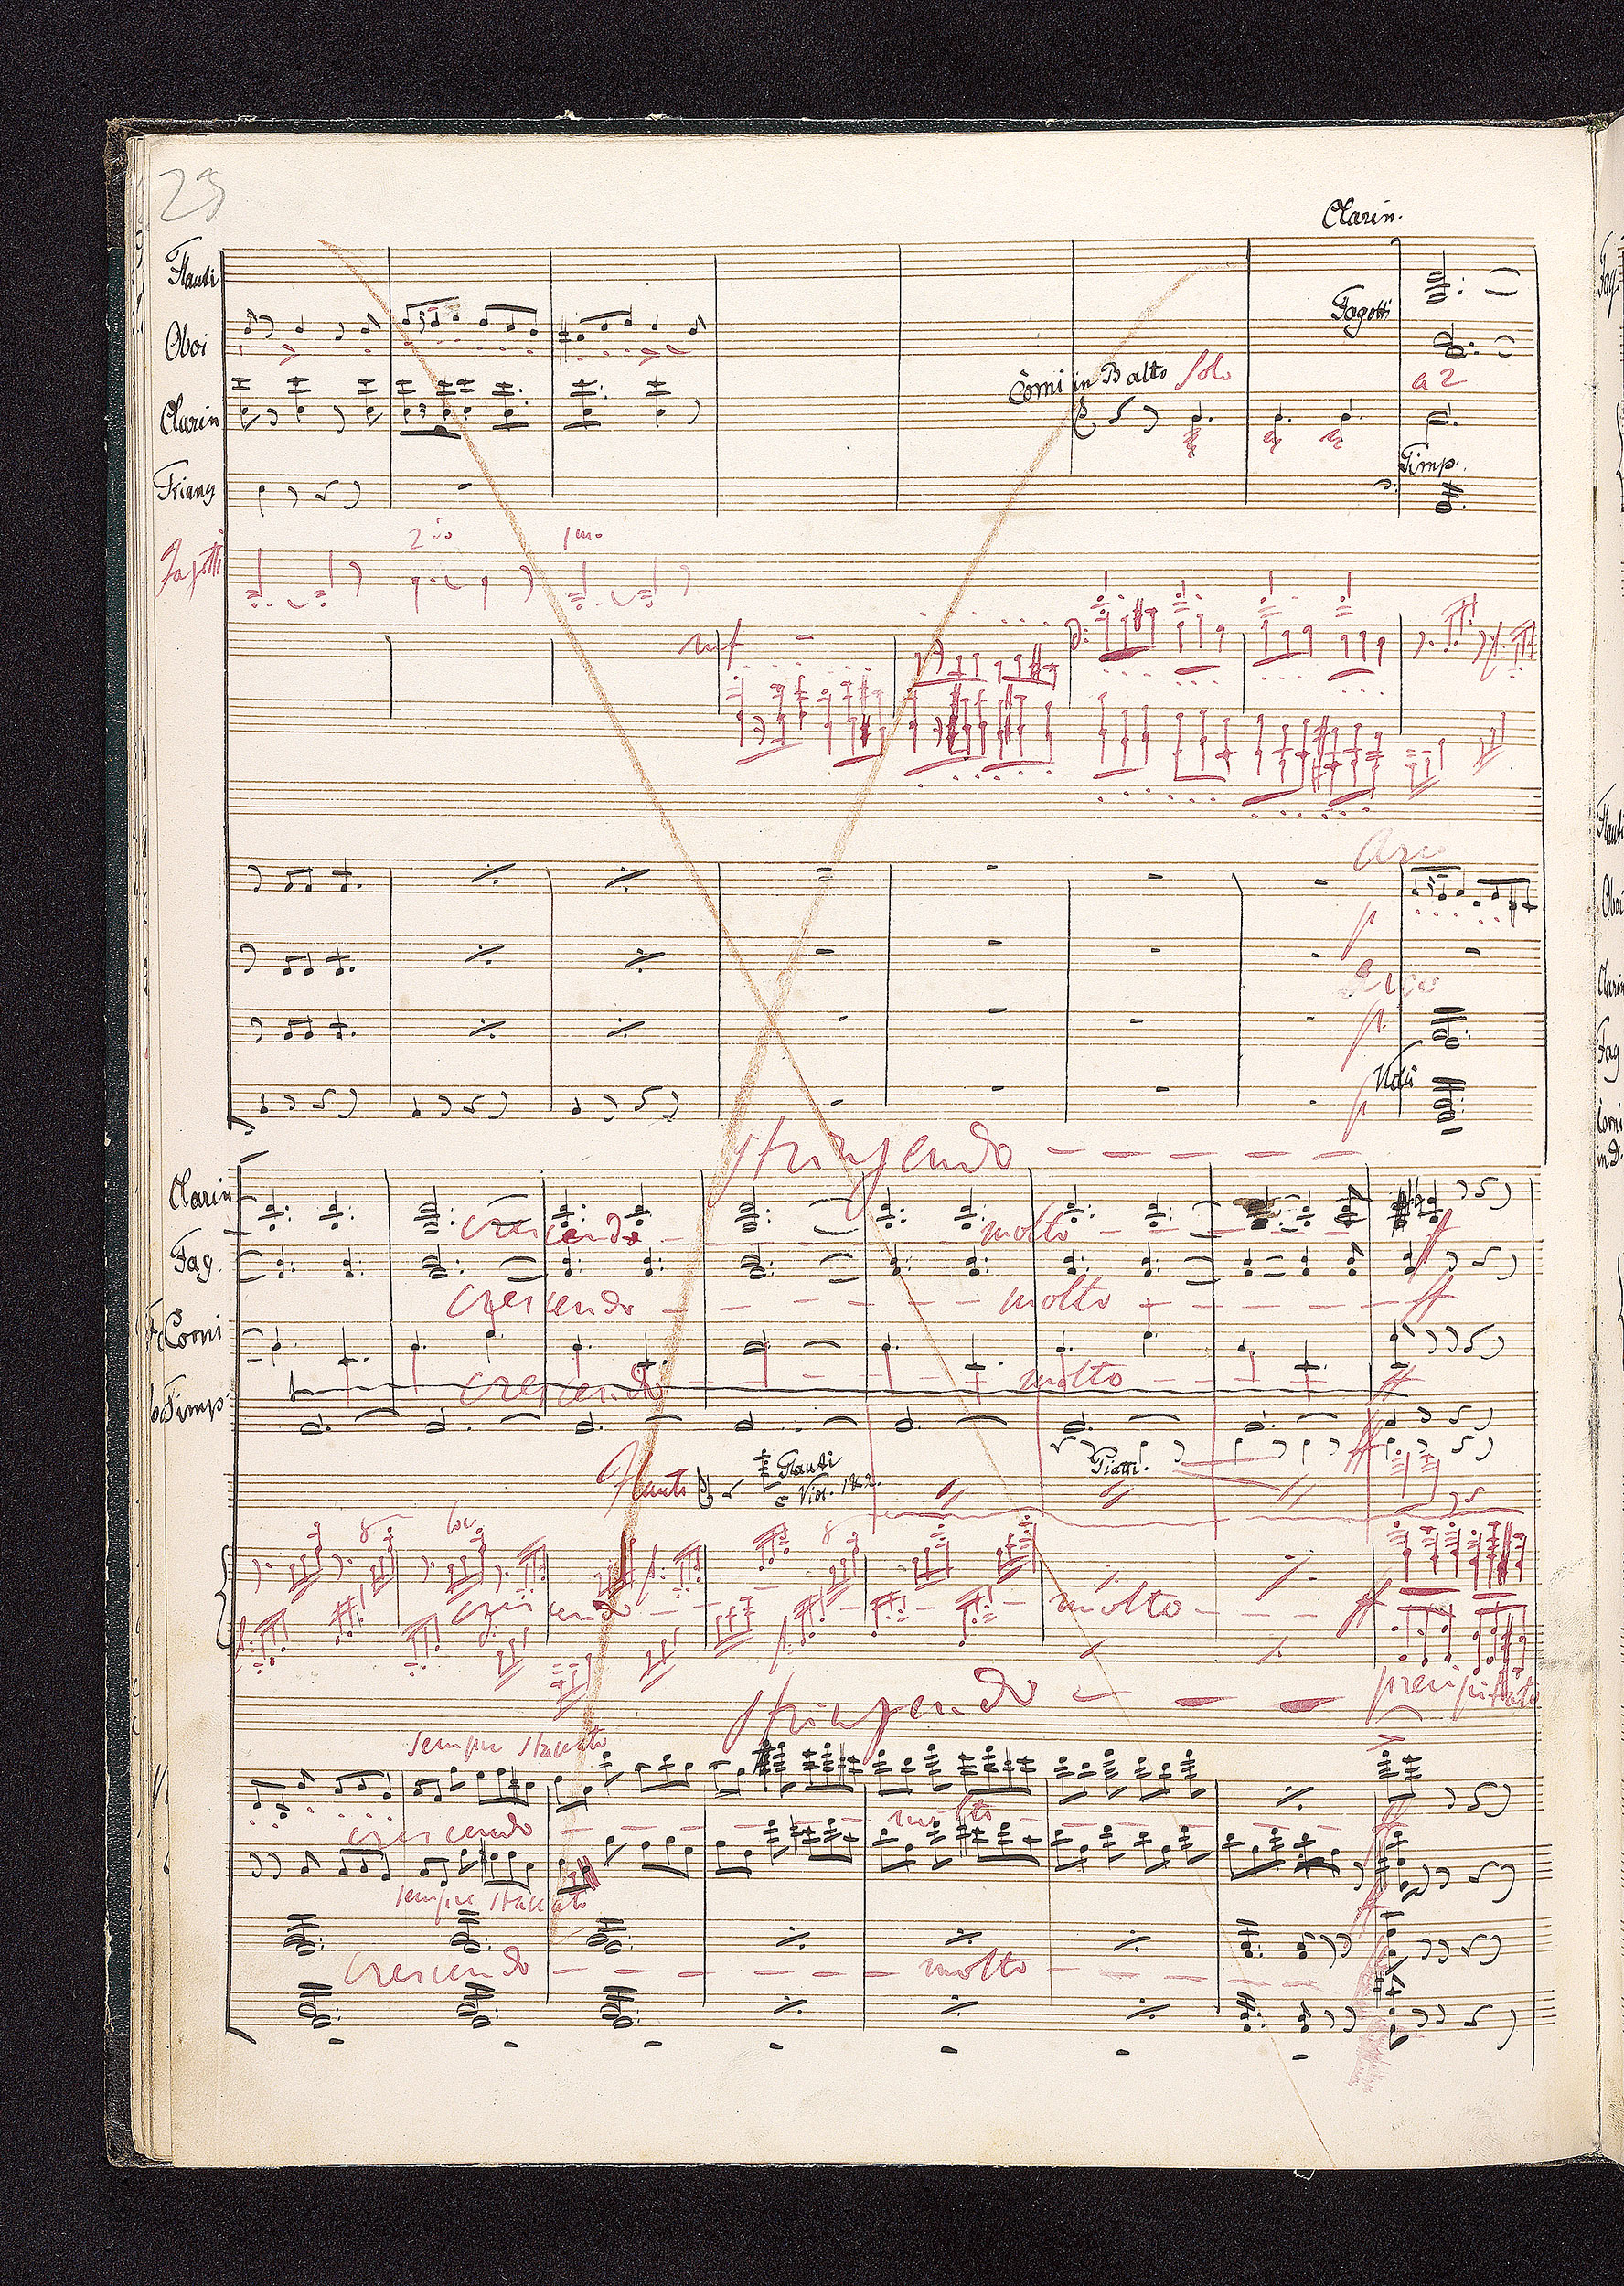 Clarin.
Flauti
Fagotti
Oboi
Corni in B alto Solo a 2
Clarin
Timp.
Triang
2do 1mo
Fagotti
mf
Arco
p
Arco
p
p
stringendo
Clarin
crescendo molto
ff
Fag.
crescendo molto ff
Corni
crescendo molto ff
Timp
ff
Flauto Flauti Piatti.
Viol. 1 & 2.
8 loco 8
crescendo molto ff
stringendo precipitato
sempre staccato
crescendo molto ff
sempre staccato
crescendo molto